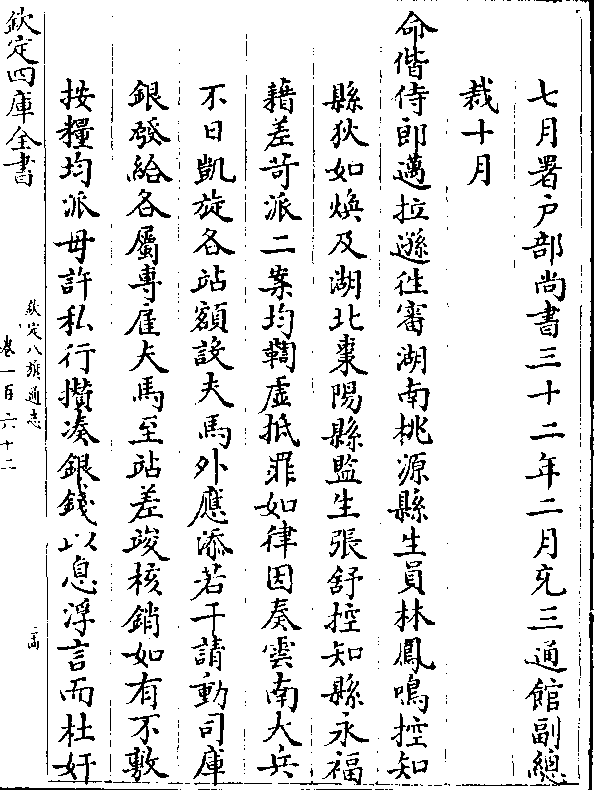 七月署户部尚書三十二年二月充三通館副總
裁十月
命偕侍郎邁拉遜徃審湖南桃源縣生員林鳳鳴控知
縣狄如煥及湖北棗陽縣監生張舒控知縣永福
藉差苛派二案均鞫虛抵罪如律因奏雲南大兵
不日凱旋各站額設夫馬外應添若干請動司庫
銀發給各屬專雇夫馬至站差竣核銷如有不敷
按糧均派毋許私行攅凑銀錢以息浮言而杜奸
欽定四庫全書
欽定八旗通志
卷一百六十二